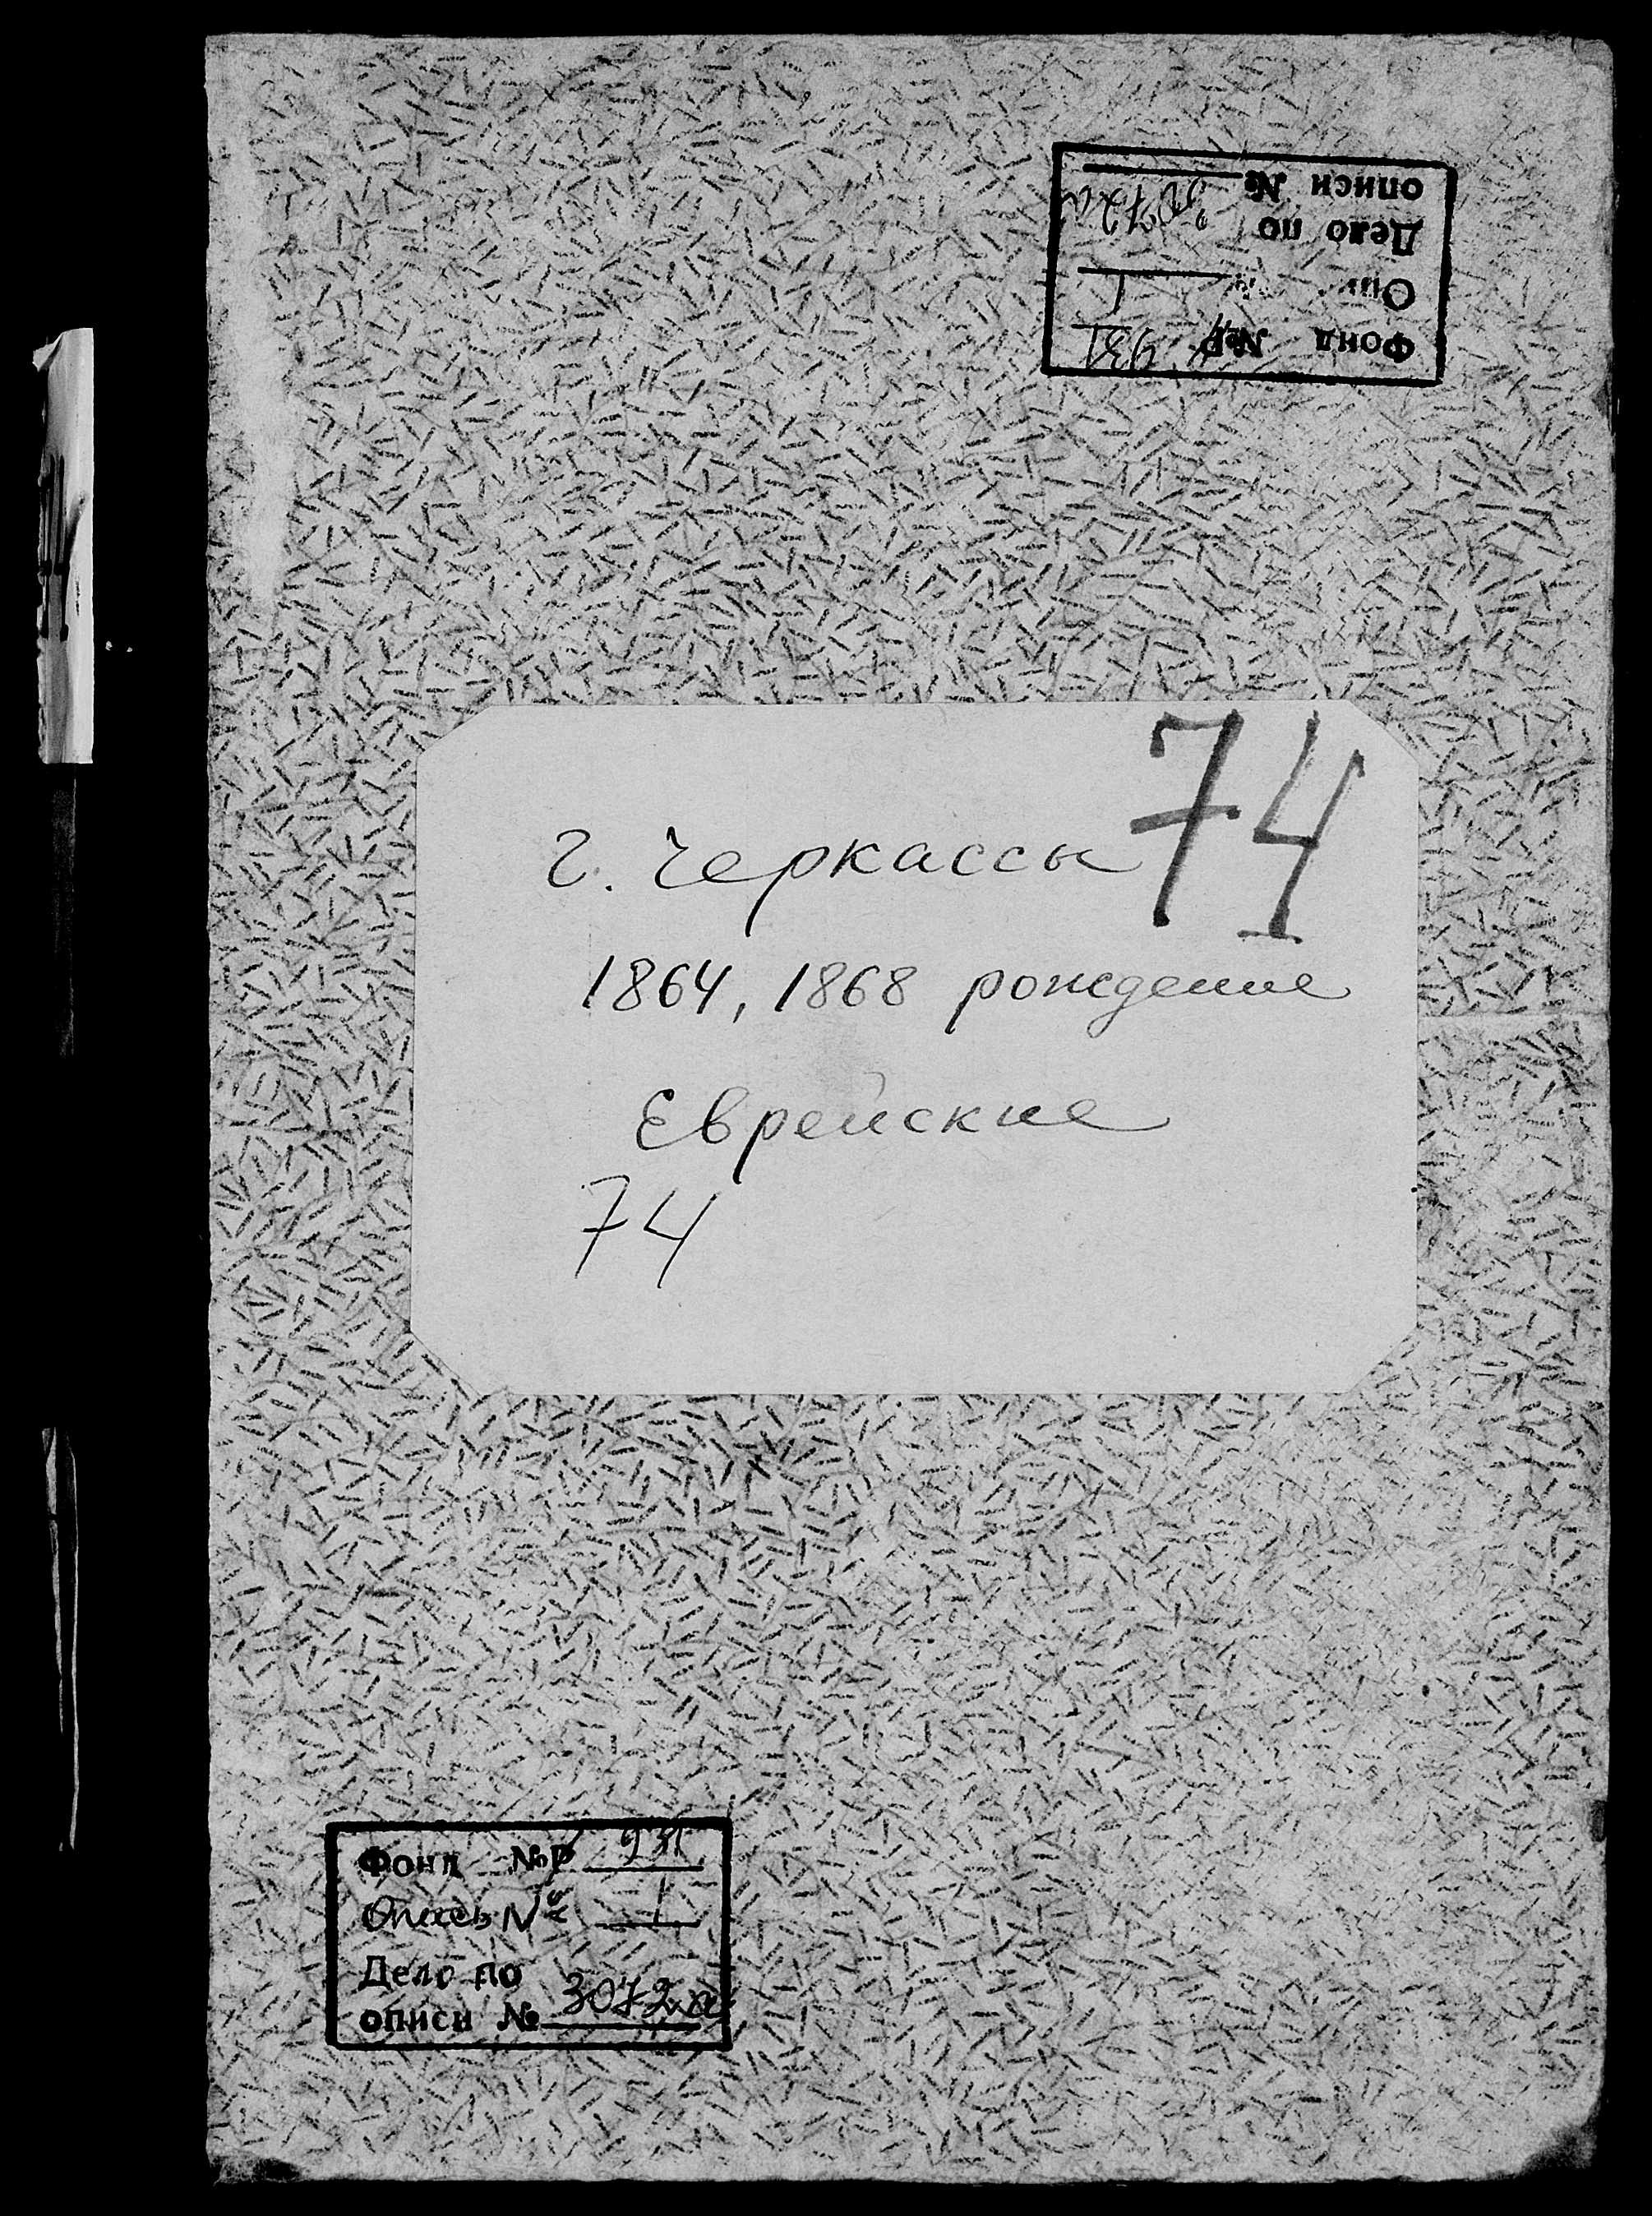 описи № 3072а
Дело по
Оп 1
Фонд №Р 931
74
г. Черкассы
1864, 1868 рождение
Еврейские
74
Фонд №Р 931
Опись № 1
Дело по
описи № 3072а